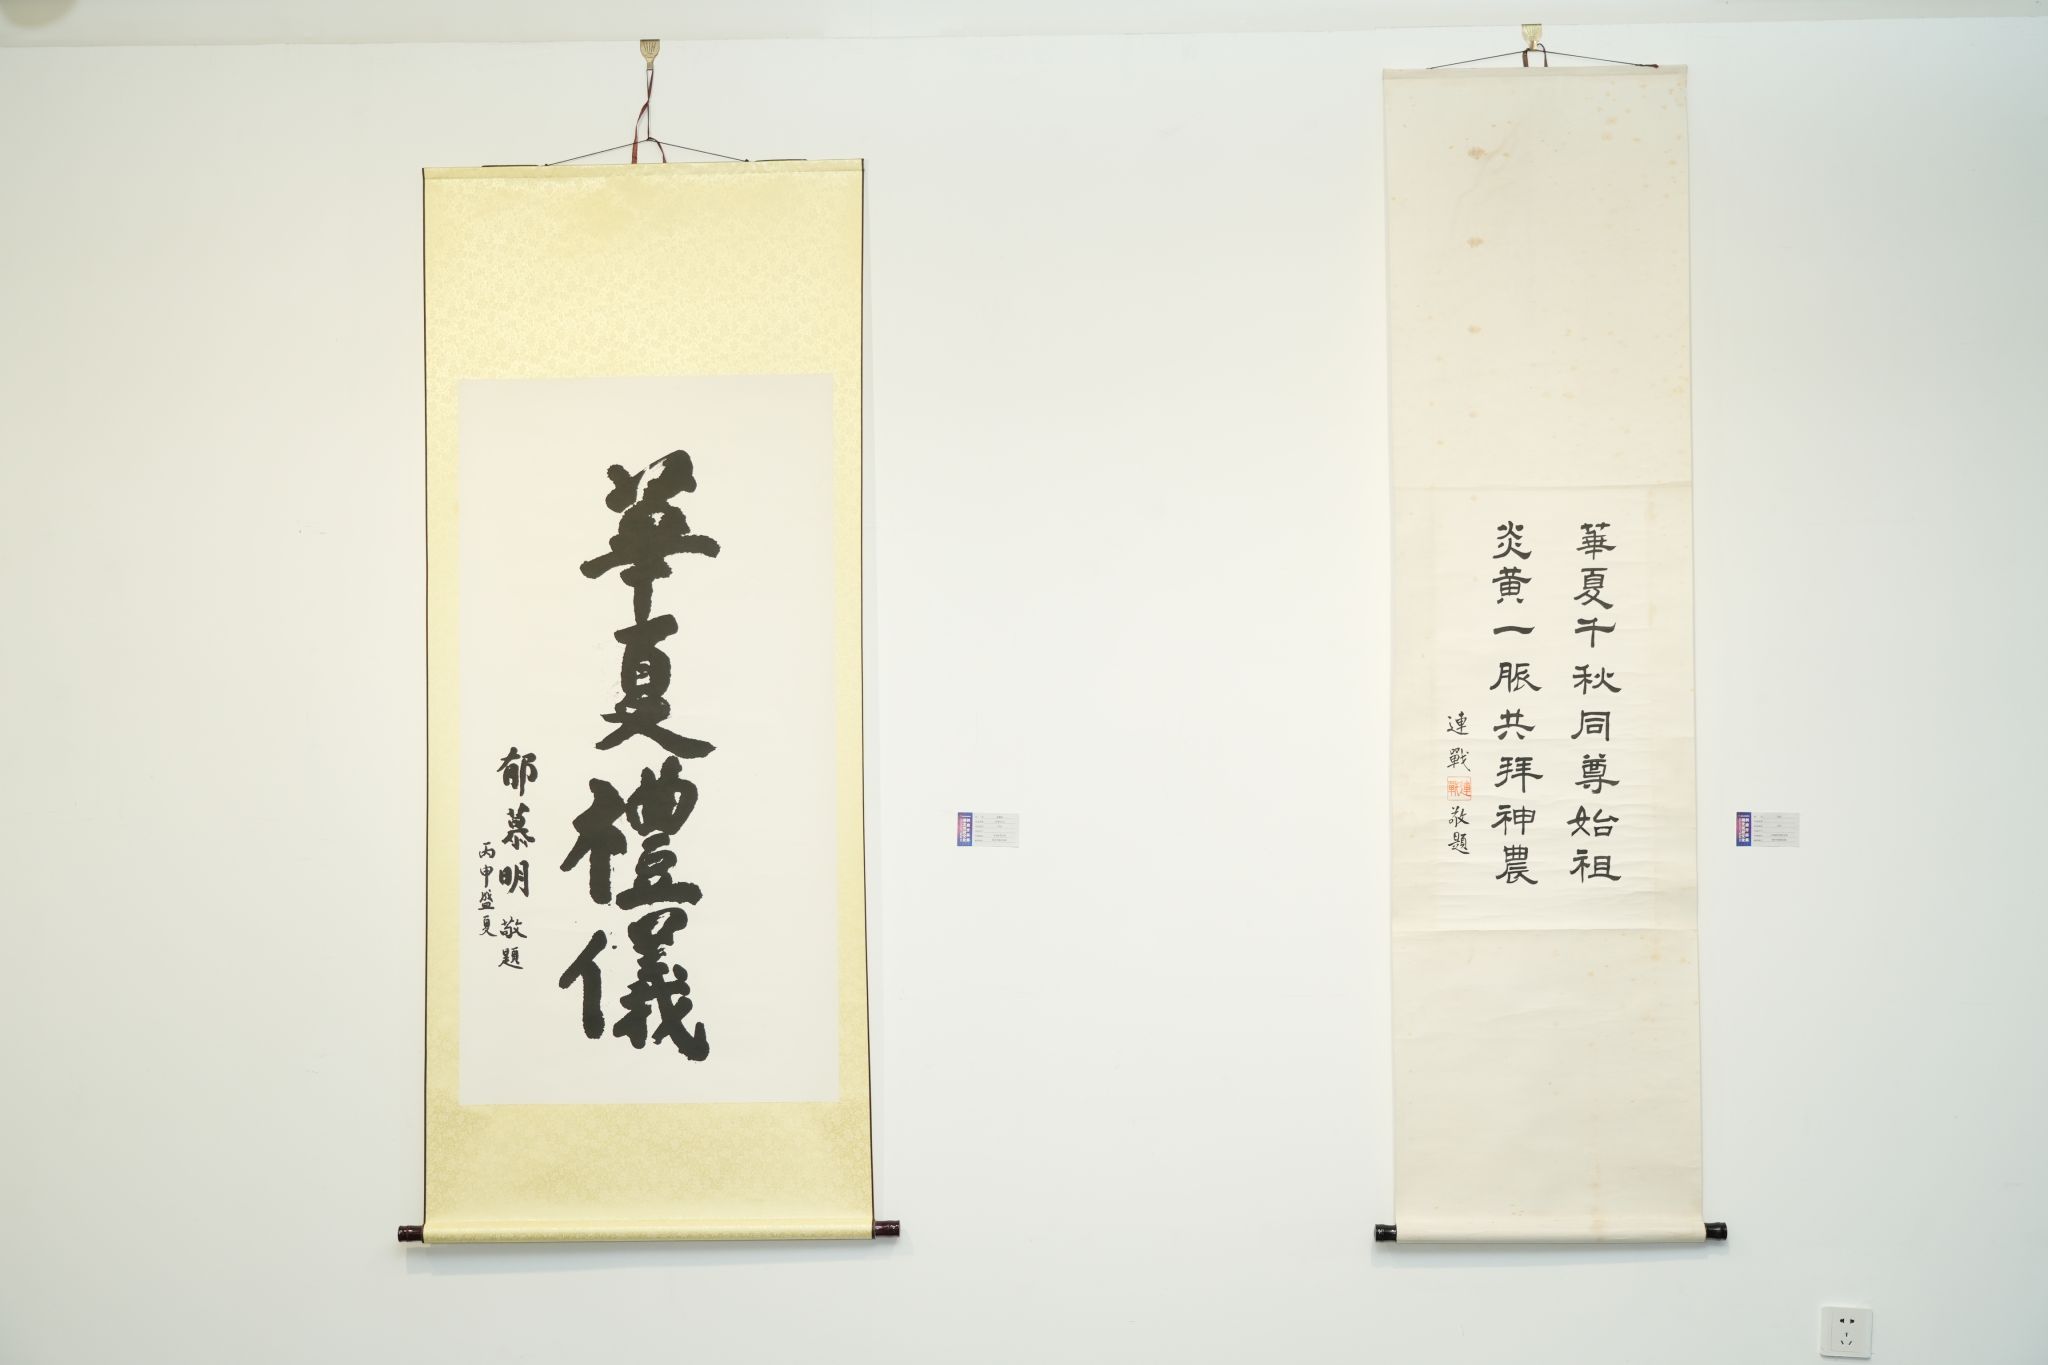 華夏禮儀
郁慕明敬題
丙申盛夏
華夏千秋同尊始祖
炎黃一脈共拜神農
連戰
連戰
敬題